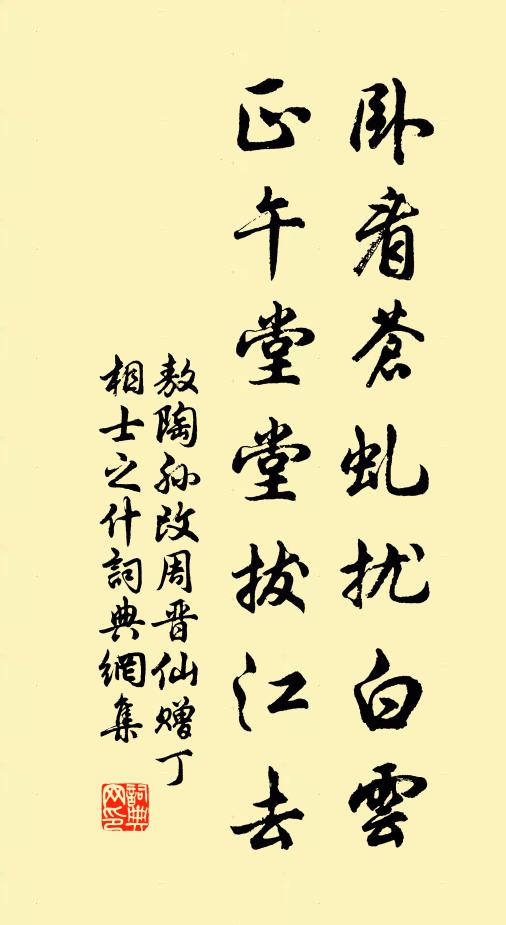 卧看苍虬扰白雲
正午堂堂拔江去
敖陶孙改周晋仙赠丁
相士之什詞典網集
詞典
网印